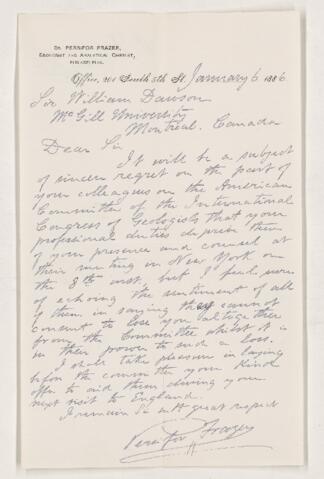 Dr. PERSIFOR FRAZER,
GEOLOGIST AND ANALYTICAL CHEMIST,
PHILADELPHIA.
Office, 201 South 5th St. January 6 1886
Sir William Dawson
McGill University
Montreal, Canada
Dear Sir
It will be a subject
of sincere regret on the part of
your colleagues on the American
Committee of the International
Congress of Geologists that your
professional duties deprive them
of your presence and counsel at
their meeting in New York on
the 8th inst, but I feel sure
of echoing the sentiment of all
of them in saying they cannot
consent to lose you altogether
from the Committee whilst it is
in their power to such a loss.
I shall take pleasure in laying
before the committee your kind
offer to aid them during your
next visit to England.
I remain Sir with great respect
Persifor Frazer